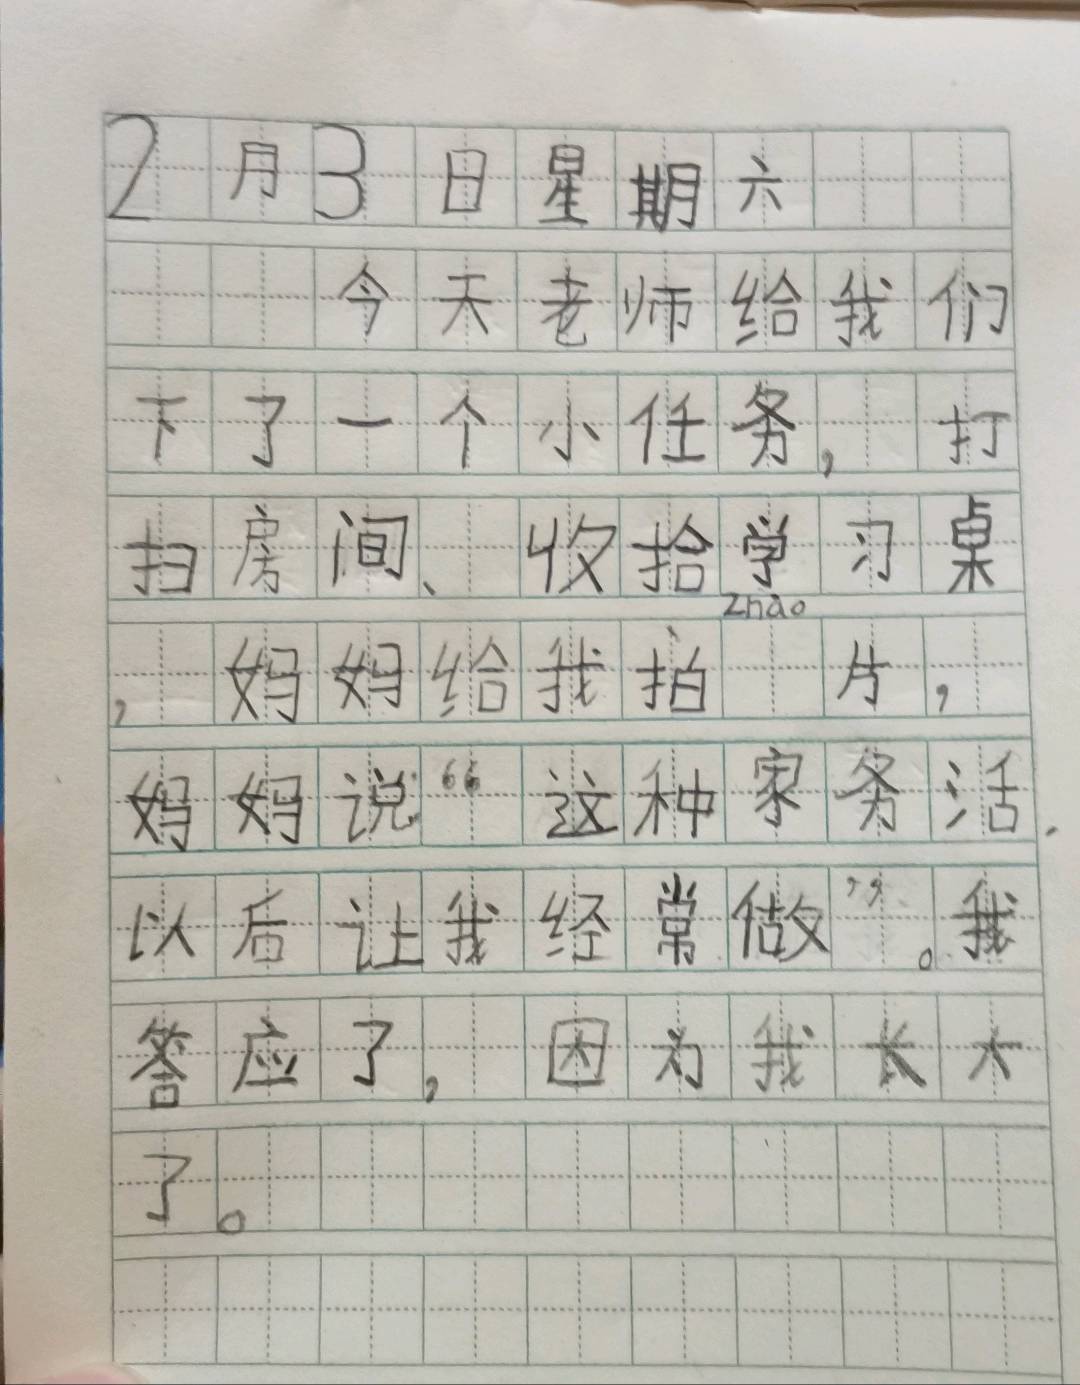 2月3日星期六
今天老师给我们
下了一个小任务，打
扫房间、收拾学习桌
，妈妈给我拍zhao片，
妈妈说“这种家务活，
以后让我经常做”。我
答应了，因为我长大
了。